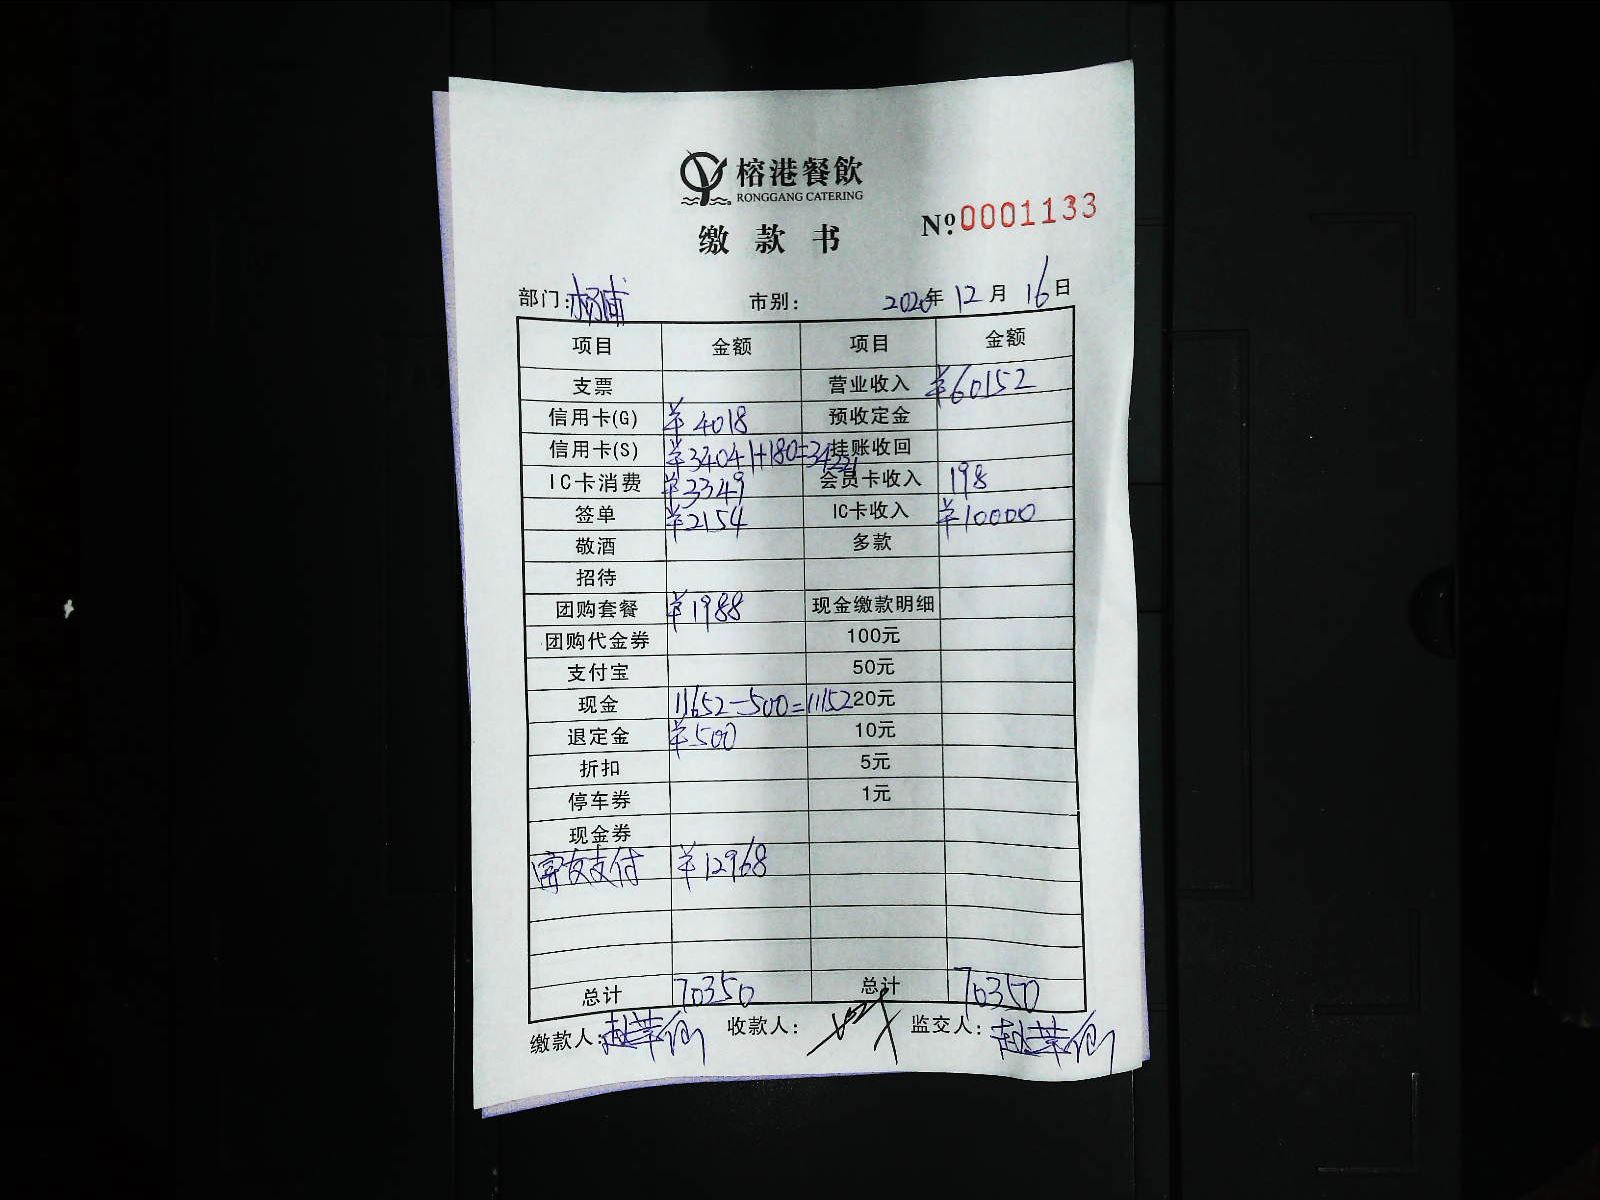 榕港餐飲
RONGGANG CATERING
缴款书
Nº0001133
部门:杨浦 市别: 2020年12月16日
项目 金额 项目 金额
支票 营业收入 ¥60152
信用卡(G) ¥4018 预收定金
信用卡(S) ¥34041+180=34221 挂账收回
IC卡消费 ¥3349 会员卡收入 198
签单 ¥2154 IC卡收入 ¥10000
敬酒 多款
招待
团购套餐 ¥1988 现金缴款明细
团购代金券 100元
支付宝 50元
现金 11652-500=11152 20元
退定金 ¥500 10元
折扣 5元
停车券 1元
现金券
支付 ¥12968
总计 70350 总计 70350
缴款人: 收款人: 监交人: